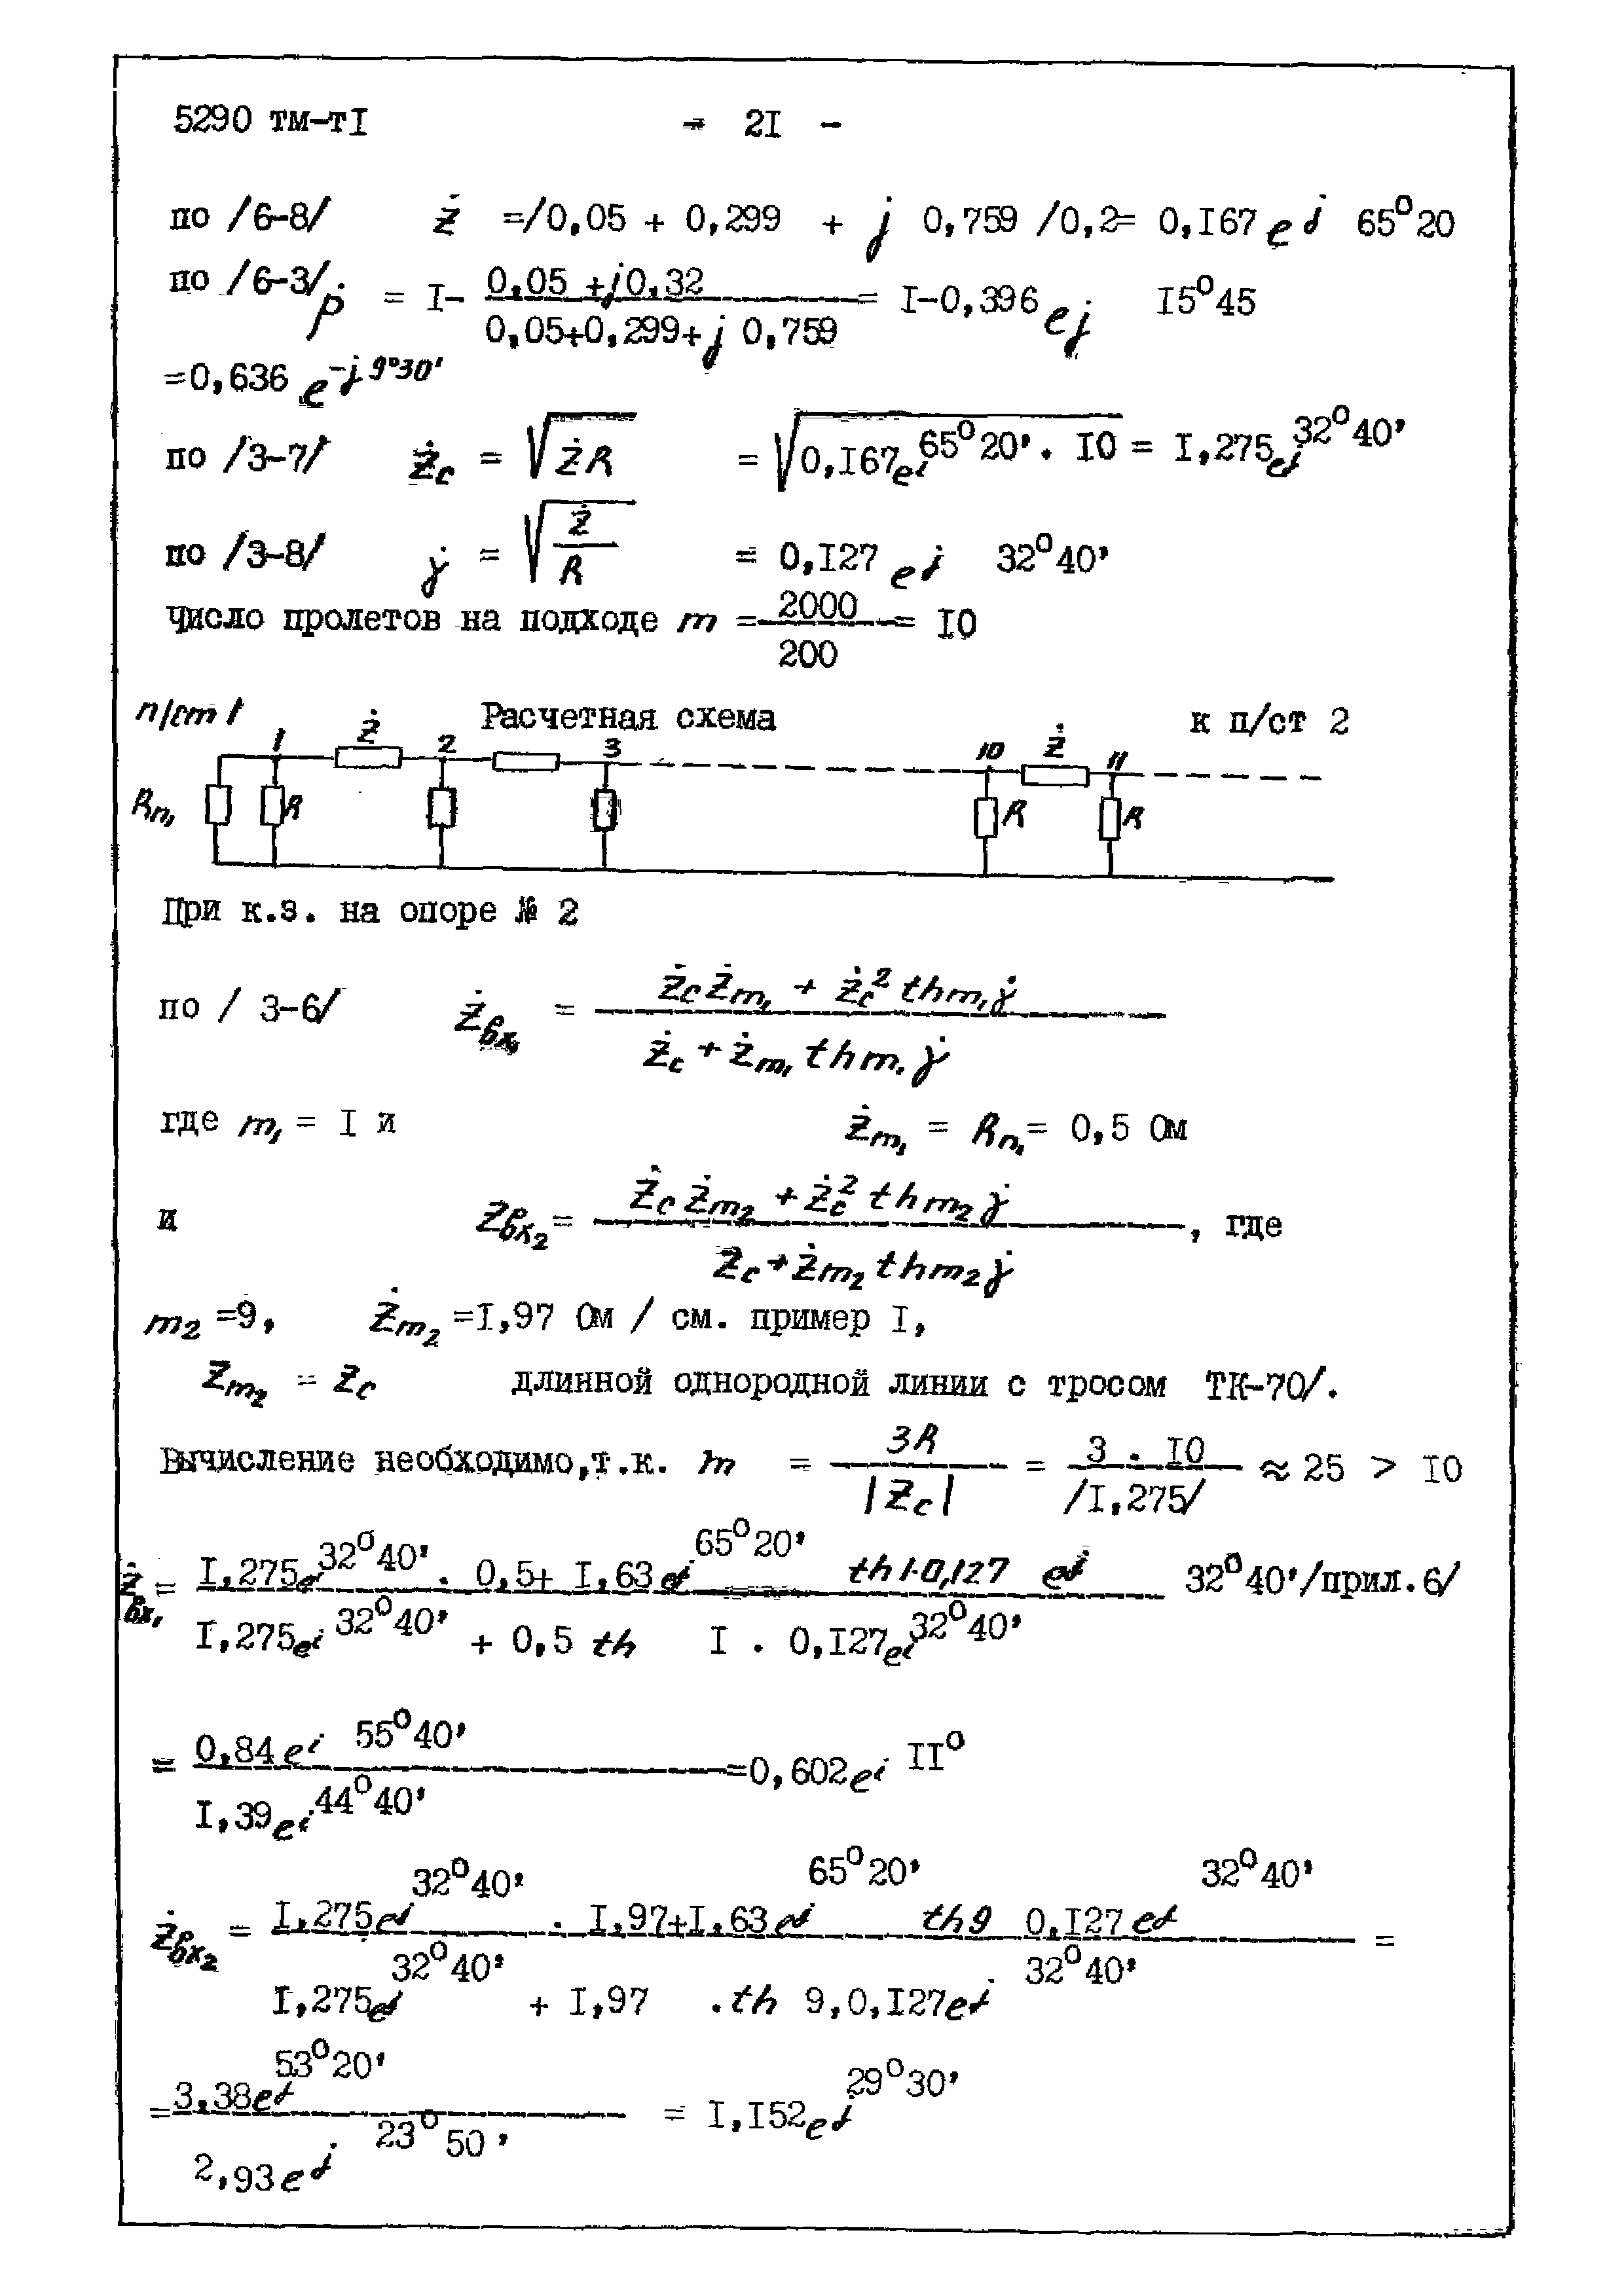 5290 тм-тI - 2I -
по /6-8/ Ż =/0,05 + 0,299 + j 0,759 /0,2= 0,I67 e j 65°20
по /6-3/ ṗ = I- (0,05 +j0,32) / (0,05+0,299+j 0,759) = I-0,396 e j I5°45
=0,636 e -j 9°30'
по /3-7/ Żc = √ŻR = √0,I67 e j 65°20'. I0 = I,275 e j 32°40'
по /3-8/ γ̇ = √Ż/R = 0,I27 e j 32°40'
число пролетов на подходе m = 2000/200 = I0
п/ст 1 Расчетная схема к п/ст 2
1 Ż 2 3 10 Ż 11
Rп₁ R R R
При к.з. на опоре № 2
по / 3-6/ Żвх₁ = (Żc Żm₁ + Żc² th m₁ γ̇) / (Żc + Żm₁ th m₁ γ̇)
где m₁ = I и Żm₁ = Rп₁= 0,5 Ом
и Zвх₂ = (Żc Żm₂ + Żc² th m₂ γ̇) / (Żc + Żm₂ th m₂ γ̇), где
m₂ =9, Żm₂ =I,97 Ом / см. пример I,
Żm₂ = Zc длинной однородной линии с тросом ТК-70/.
Вычисление необходимо,т.к. m = 3R/|Zc| = 3 . I0 //I,275/ ≈ 25 > I0
Żвх₁ = (I,275 e j 32°40'. 0,5+ I,63 e j 65°20' th 1·0,127 e j 32°40') / (I,275 e j 32°40' + 0,5 th I . 0,I27 e j 32°40') /прил.6/
= 0,84 e j 55°40' / I,39 e j 44°40' =0,602 e j II°
Żвх₂ = (I,275 e j 32°40' . I,97+I,63 e j 65°20' th 9 0,I27 e j 32°40') / (I,275 e j 32°40' + I,97 .th 9,0,I27 e j 32°40') =
= 3,38 e j 53°20' / 2,93 e j 23°50' = I,I52 e j 29°30'